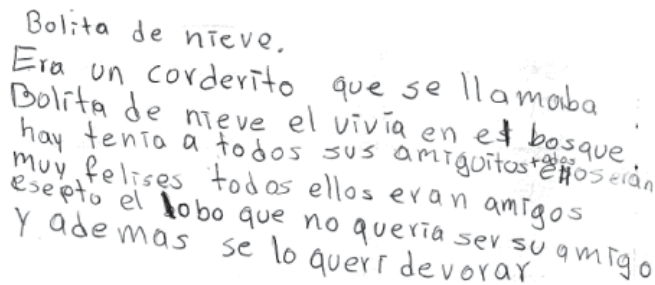 Bolita de nieve.
Era un corderito que se llamaba :
Bolita de nieve el vivía en el bosque.
hay tenía a todos sus amiguitos todos ellos eran
muy felises todos ellos eran amigos
esepto el lobo que no quería ser su amigo
Y ade mas se lo querí devorar